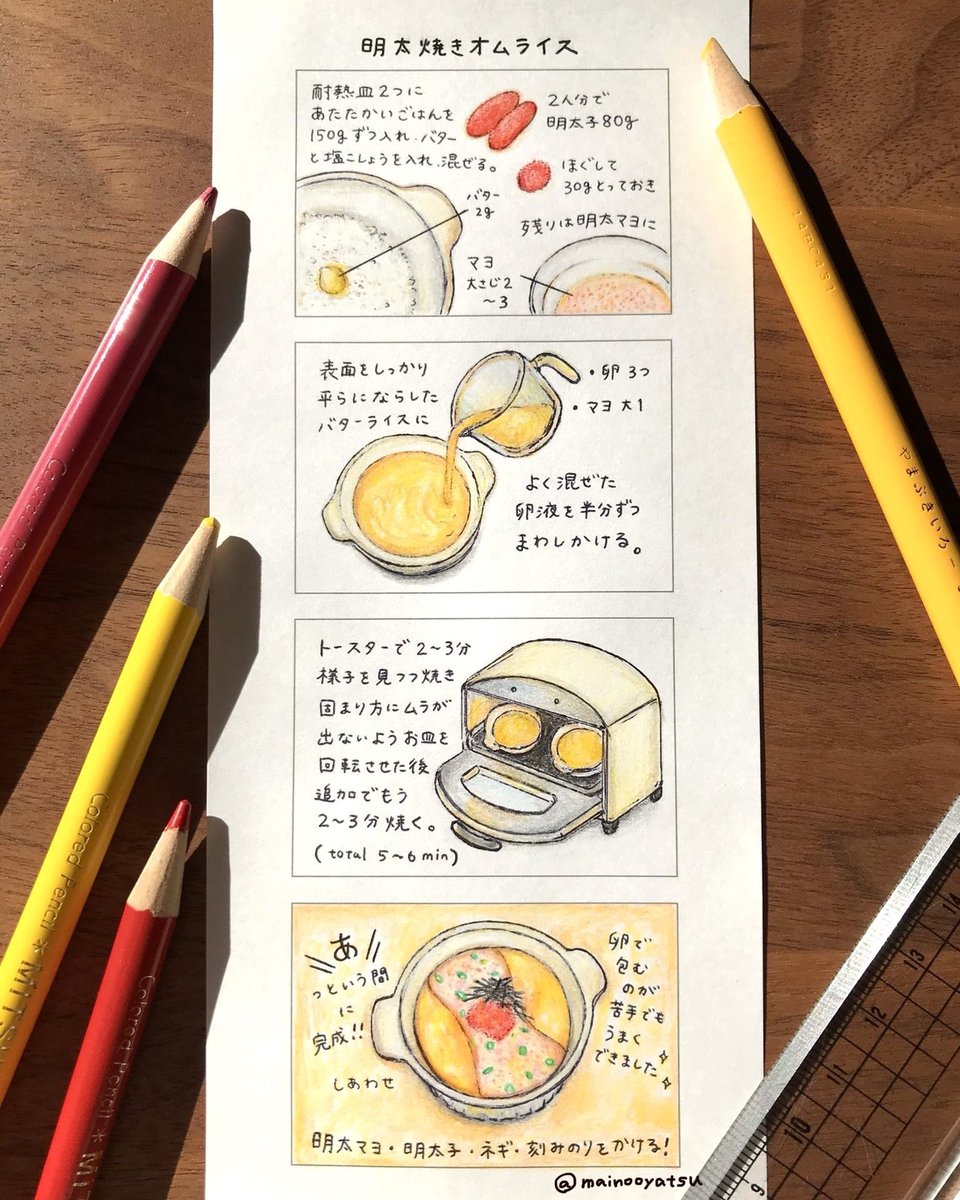 明太焼きオムライス
耐熱皿2つに
あたたかいごはんを
150gずつ入れ、バター
と塩こしょうを入れ、混ぜる。
2人分で
明太子80g
ほぐして
30gとっておき
バター
2g
残りは明太マヨに
マヨ
大さじ2
〜3
表面をしっかり
平らにならした
バターライスに
・卵 3つ
・マヨ 大1
よく混ぜた
卵液を半分ずつ
まわしかける。
トースターで2〜3分
様子を見つつ焼き
固まり方にムラが
出ないようお皿を
回転させた後
追加でもう
2〜3分焼く。
(total 5〜6 min)
あ
っという間
に
完成!!
しあわせ
卵で
包む
のが
苦手でも
うまく
できました
明太マヨ・明太子・ネギ・刻みのりをかける!
@mainooyatsu
やまぶきいろ
Colored Pencil * MITSU
Colored Pencil * MI
14
13
12
11
10
9